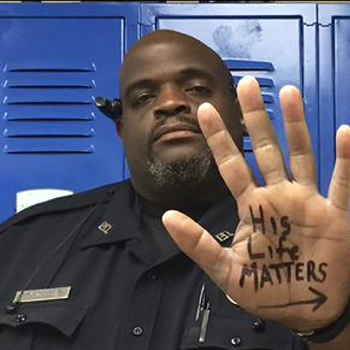 His
Life
MATTERS